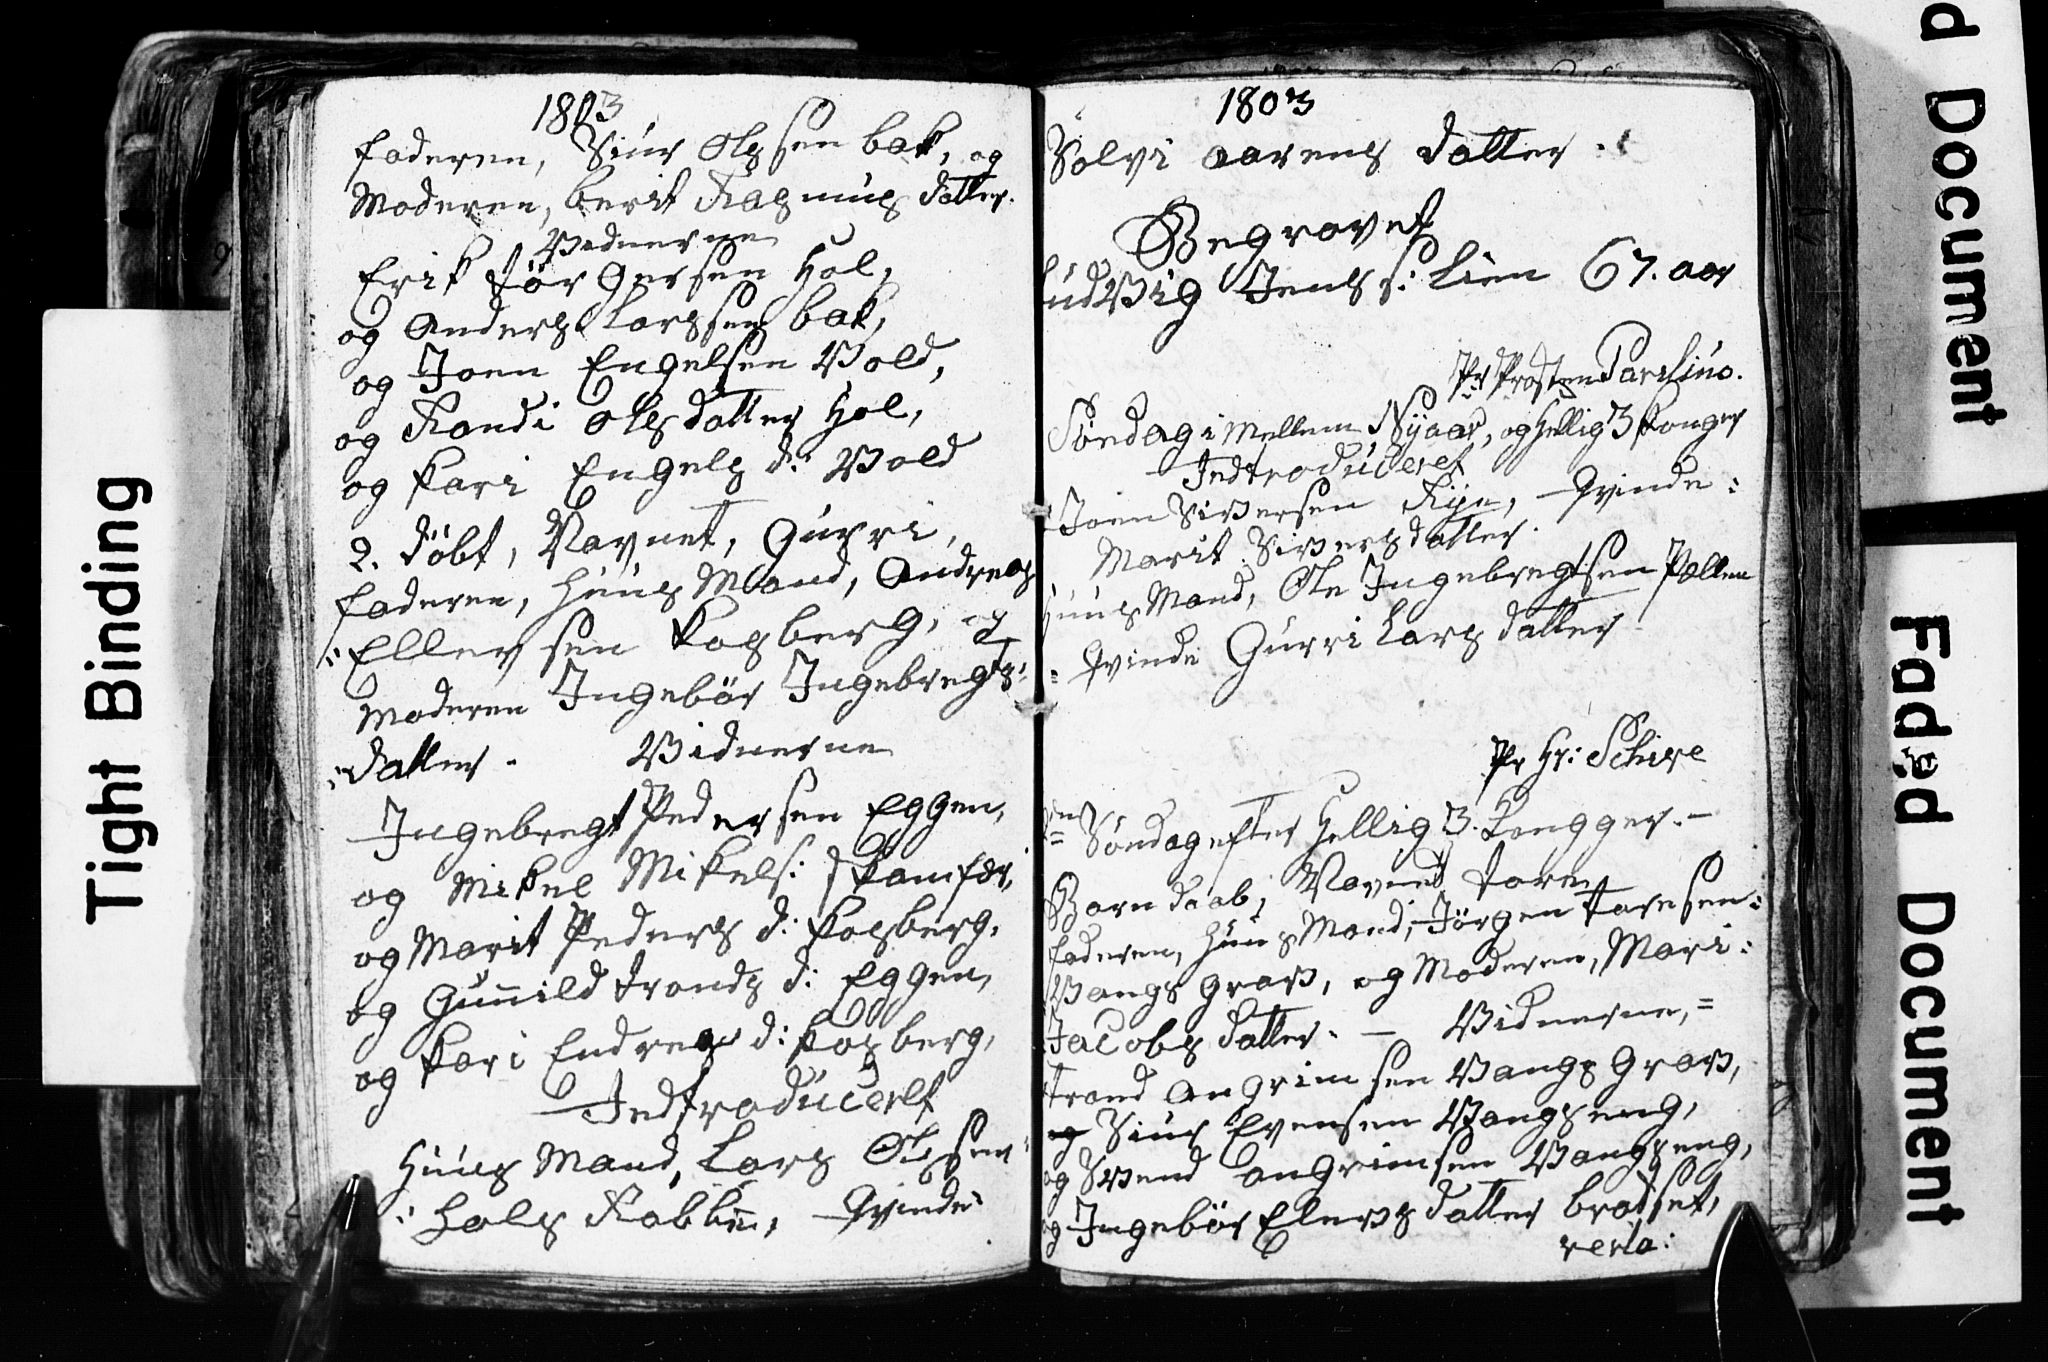 1803
faderen, Siur Olssen bak, og
Moderen, berit Rasmus datter.
Vidnerne
Erik Jörgersen Hol,
og Anders Larssen bak,
og Joen Engelsen Vold,
og Randi Olsdatter Hol,
og Kari Engels d: Vold
2. döbt, Navnet, Gurri,
faderen, Huus Mand, Andreas
Ellersen Kosberg, og
Moderen Ingebör Ingebregts:
datter. Vidnerne
Ingebregt Pedersen Eggen,
og Mikel Mikels: Skamfær,
og Marit Peders d: Kosberg,
og Gunnild Tronds d: Eggen,
og Kari Endres d: Kosberg,
Indtroduceret
Huus Mand, Lars Olssen
Hols Rabben, Qvinde
1803
Solvi Aarens datter.
Begravet
Ludvig Jens s: Lien 67. aar
Pr Prosten Parelius.
Söndag i mellem Nyaar, og Hellig 3 Konger
Indtroduceret
Joen Siversen Rye, Qvinde:
Marit Siversdatter.
Huus Mand, Ole Ingebregtsen Pallen
Qvinde Gurri Lars datter
Pr Hr: Schive
Söndag efter Hellig 3. Kongger.
Barn daab, Navnet Tore,
faderen, Huus Mand, Jörgen Toresen:
Vangs Grav, og Moderen, Mari:
Jacobs datter. Vidnerne,
Trond Angrimsen Vangs Grav,
og Siur Evensen Vangseng,
og Svend Angrimsen Vangseng,
og Ingebör Elevs datter bratset,
verta:
Tight Binding
d Document
Faded Document